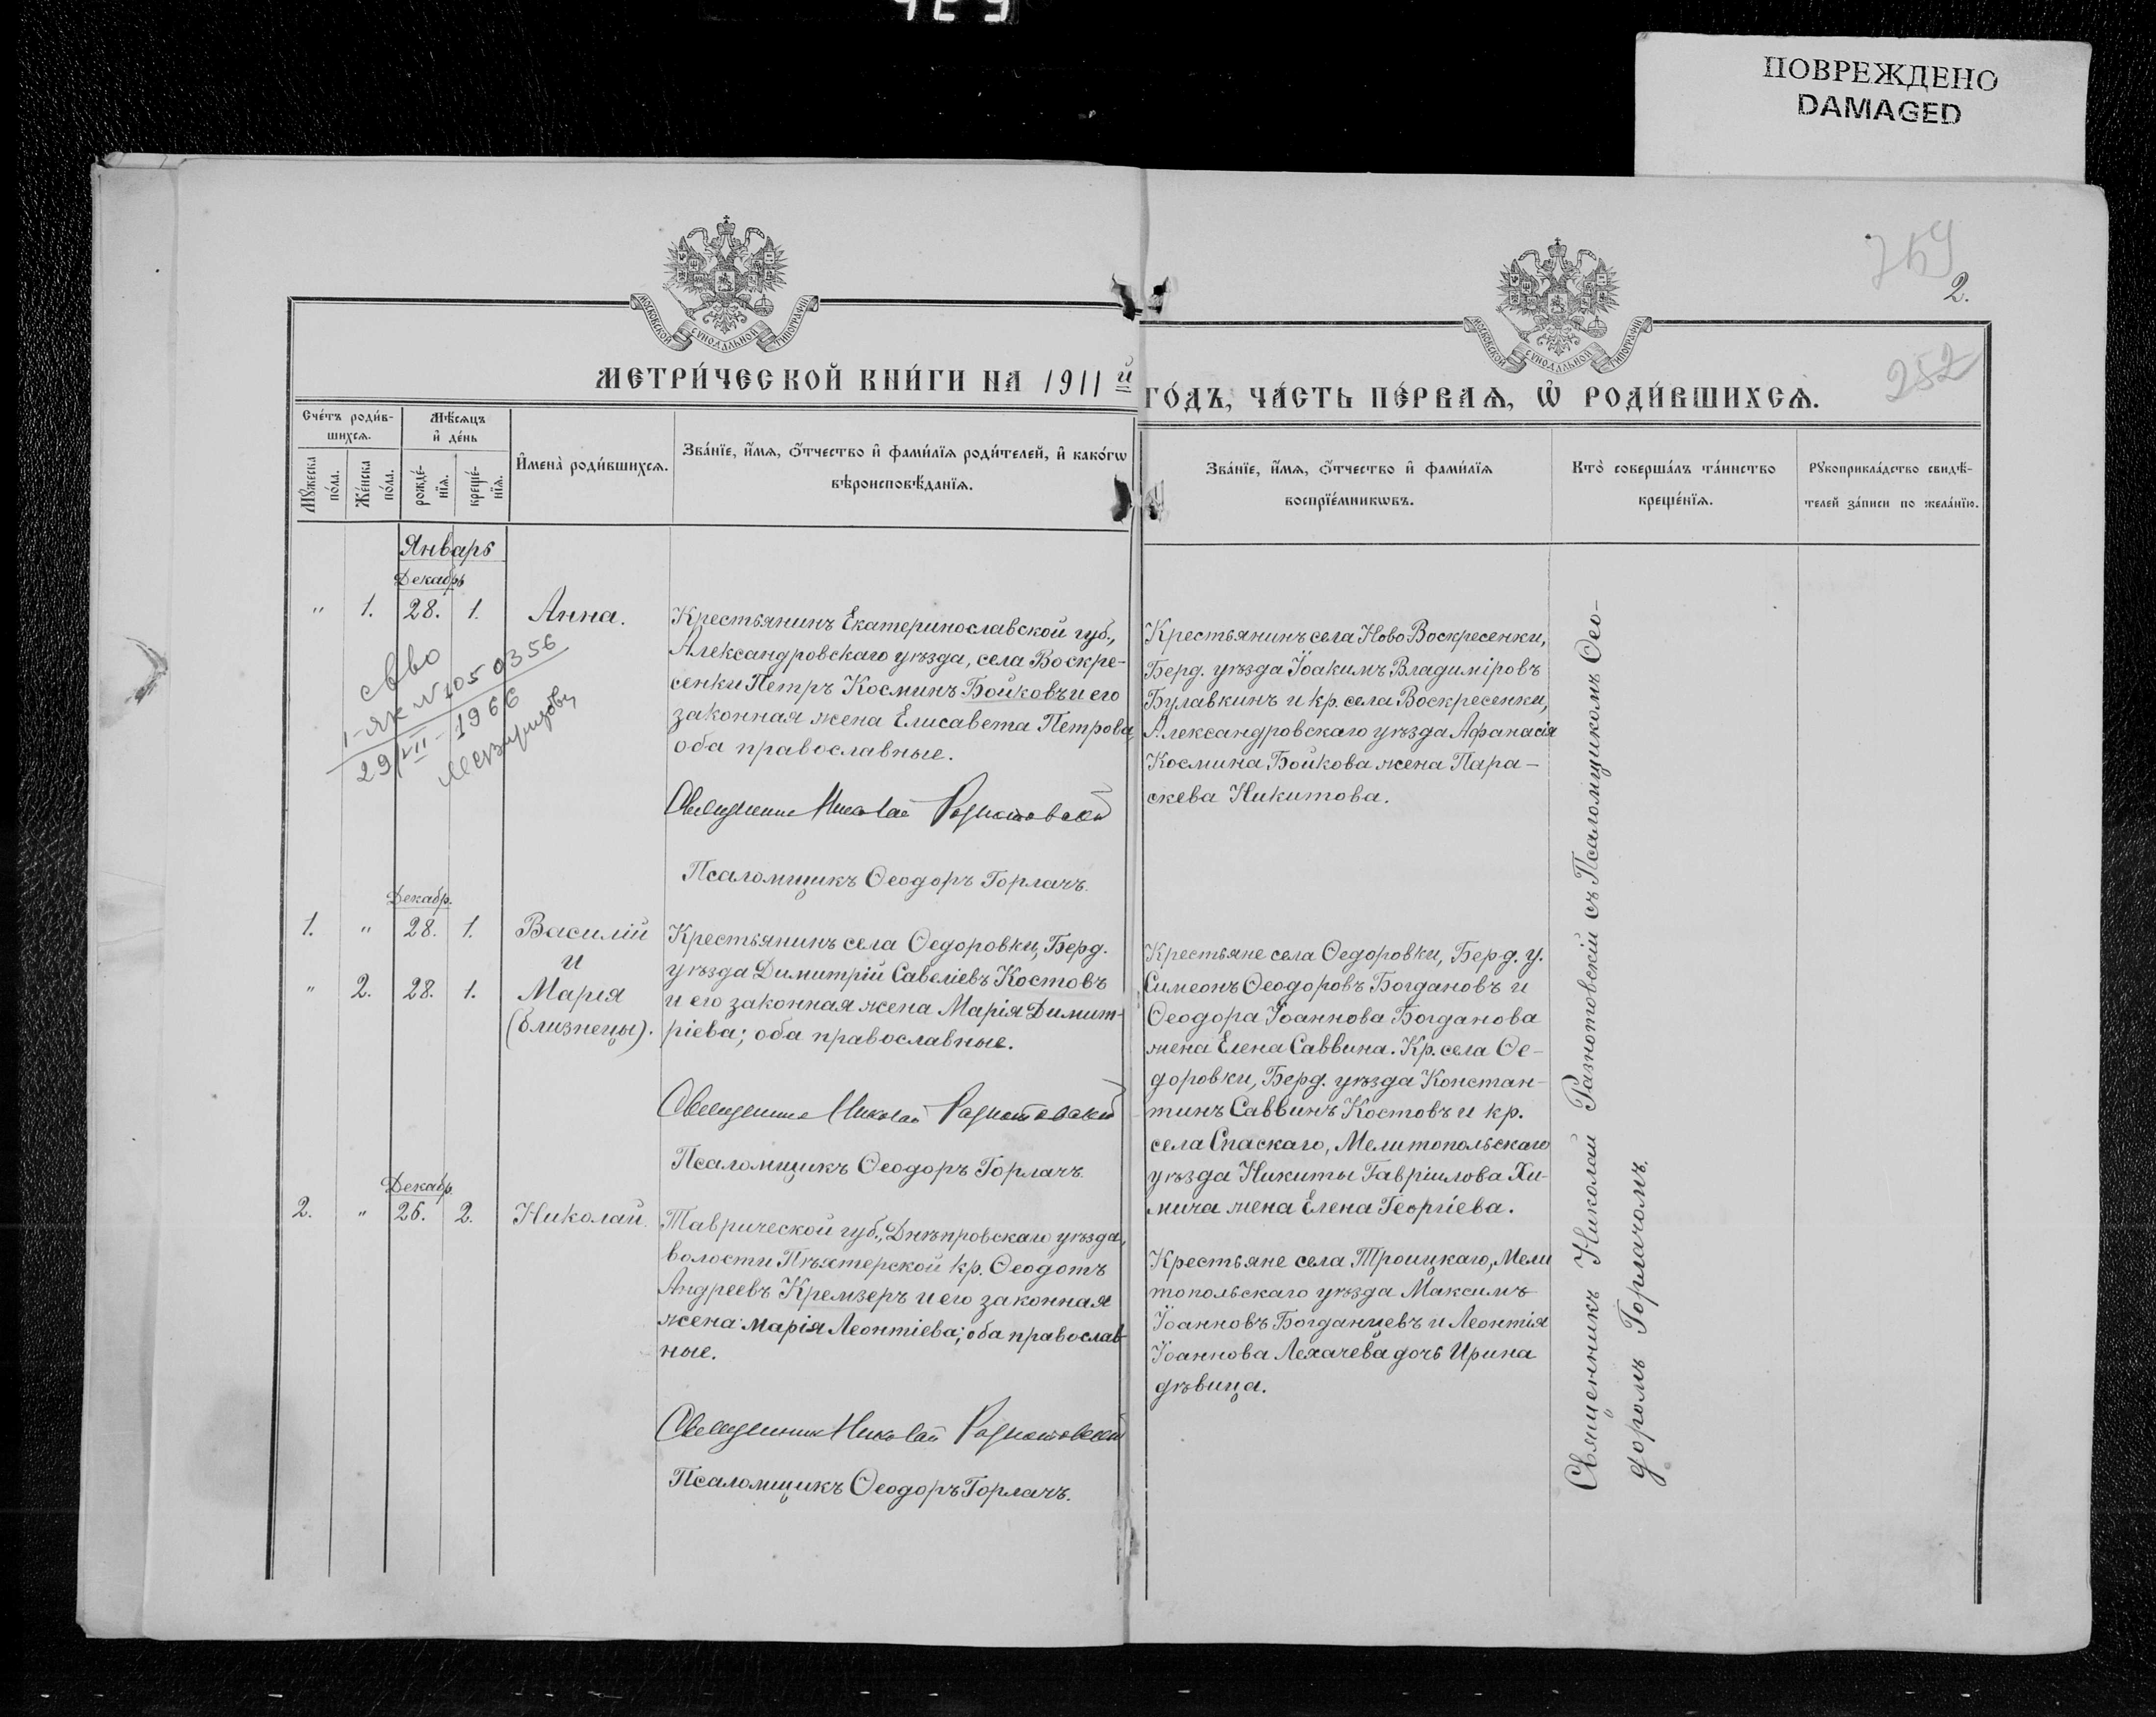 ПОВРЕЖДЕНО
DAMAGED
2.
252
МОСКОВСКОЙ СѴНОДАЛЬНОЙ ТИПОГРАФІИ
МОСКОВСКОЙ СѴНОДАЛЬНОЙ ТИПОГРАФІИ
МЕТРИ́ЧЕСКОЙ КНИ́ГИ НА 1911й ГО́ДЪ, ЧА́СТЬ ПЕ́РВАѦ, Ѡ҆ РОДИ́ВШИХСѦ.
Сче́тъ роди́в-
шихсѧ.
Мѣ́сѧцъ
и҆ де́нь
Мꙋ́жеска
по́ла.
Же́нска
по́ла.
рожде́-
нїѧ.
креще́-
нїѧ.
И҆мена̀ роди́вшихсѧ.
Зва́нїе, и҆́мѧ, ѻ҆́тчество и҆ фами́лїѧ роди́телей, и҆ како́гѡ
вѣроисповѣ́данїѧ.
Зва́нїе, и҆́мѧ, ѻ҆́тчество и҆ фами́лїѧ
воспрїе́мникѡвъ.
Кто̀ соверша́лъ та́инство
креще́нїѧ.
Рꙋкоприкла́дство свидѣ́-
телей за́писи по жела́нїю.
Январь
Декабрь
" 1. 28. 1. Анна.
Крестьянинъ Екатеринославской губ.,
Александровскаго уѣзда, села Воскре-
сенки Петръ Косминъ Бойковъ и его
законная жена Елисавета Петрова,
оба православные.
Священникъ Николай Разнотовскій
Псаломщикъ Ѳеодоръ Горлачъ.
Крестьянинъ села НовоВоскресенки,
Берд. уѣзда Іоакимъ Владиміровъ
Булавкинъ и кр. села Воскресенки,
Александровскаго уѣзда Афанасія
Космина Бойкова жена Пара-
скева Никитова.
св-во
I-ЯК № 1050356
29/VII-1966
Декабр.
1. " 28. 1. Василій
и
" 2. 28. 1. Марія
(близнецы).
Крестьянинъ села Ѳедоровки, Берд.
уѣзда Димитрій Савеліевъ Костовъ
и его законная жена Марія Димит-
ріева; оба православные.
Священникъ Николай Разнотовскій
Псаломщикъ Ѳеодоръ Горлачъ.
Крестьяне села Ѳедоровки, Берд. у.
Симеонъ Ѳеодоровъ Богдановъ и
Ѳеодора Іоаннова Богданова
жена Елена Саввина. Кр. села Ѳе-
доровки, Берд. уѣзда Констан-
тинъ Саввинъ Костовъ и кр.
села Спаскаго, Мелитопольскаго
уѣзда Никиты Гавріилова Хи-
мича жена Елена Георгіева.
Декабр.
2. " 26. 2. Николай.
Таврической губ., Днѣпровскаго уѣзда,
волости Пѣхтерской кр. Ѳеодотъ
Андреевъ Кремзеръ и его законная
жена Марія Леонтіева; оба православ-
ные.
Священникъ Николай Разнотовскій
Псаломщикъ Ѳеодоръ Горлачъ.
Крестьяне села Троицкаго, Мели
топольскаго уѣзда Максимъ
Іоанновъ Богданцевъ и Леонтія
Іоаннова Лехачева дочь Ирина
дѣвица.
Священникъ Николай Разнотовскій съ Псаломщикомъ Ѳео-
доромъ Горлачомъ.